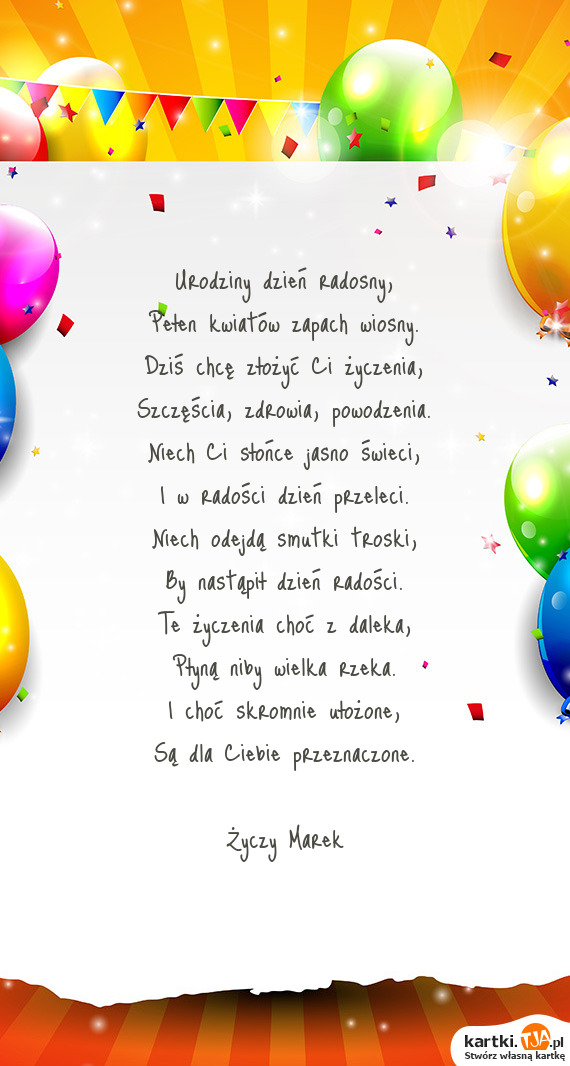 Urodziny dzień radosny,
Pełen kwiatów zapach wiosny.
Dziś chcę złożyć Ci życzenia,
Szczęścia, zdrowia, powodzenia.
Niech Ci słońce jasno świeci,
I w radości dzień przeleci.
Niech odejdą smutki troski,
By nastąpił dzień radości.
Te życzenia choć z daleka,
Płyną niby wielka rzeka.
I choć skromnie ułożone,
Są dla Ciebie przeznaczone.
Życzy Marek
kartki.TJA.pl
Stwórz własną kartkę